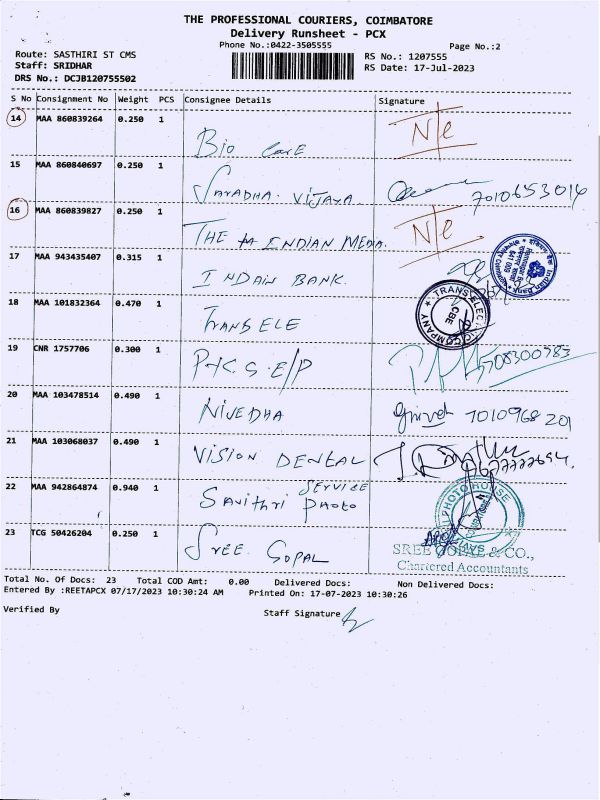 THE PROFESSIONAL COURIERS, COIMBATORE
Delivery Runsheet - PCX
Phone No.:0422-3505555
Page No.:2
Route: SASTHIRI ST CMS
Staff: SRIDHAR
DRS No.: DCJB120755502
RS No.: 1207555
RS Date: 17-Jul-2023
S No Consignment No Weight PCS Consignee Details Signature
14 MAA 860839264 0.250 1 Bio care N/e
15 MAA 860840697 0.250 1 Saradha. Vijaya 7010653014
16 MAA 860839827 0.250 1 THE INDIAN MEDA. N/e
17 MAA 943435407 0.315 1 INDAIN BANK.
18 MAA 101832364 0.470 1 TRANS ELE
TRANS ELEC COMPANY CBE
19 CNR 1757706 0.300 1 P.K.S. E/P
20 MAA 103478514 0.490 1 NIVEDHA 7010968201
21 MAA 103068037 0.490 1 VISION DENTAL
22 MAA 942864874 0.940 1 Savithri Photo SERVICE
PHOTO HOUSE
23 TCG 50426204 0.250 1 SREE. GOPAL
SREE GOPAL & CO.,
Chartered Accountants
Total No. Of Docs: 23 Total COD Amt: 0.00 Delivered Docs: Non Delivered Docs:
Entered By :REETAPCX 07/17/2023 10:30:24 AM Printed On: 17-07-2023 10:30:26
Verified By Staff Signature